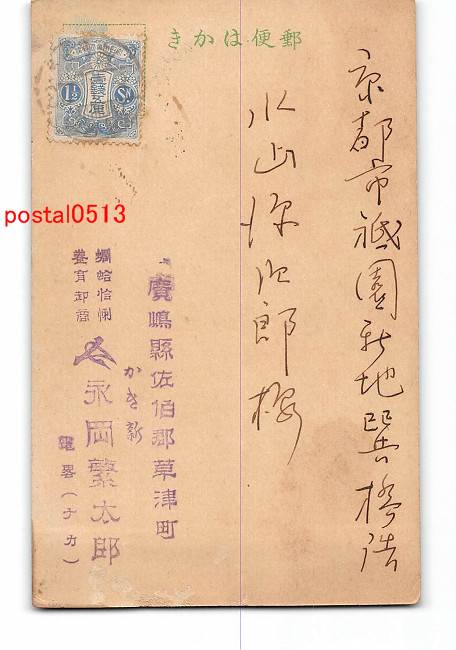 郵便はかき
京都市祇園新地巽橋詰
水山弥次郎様
廣嶋縣佐伯郡草津町
かき新
永岡繁太郎
電畧(ナカ)
蠣蛤
養育卸商
壹錢五厘
1½ Sn
postal0513